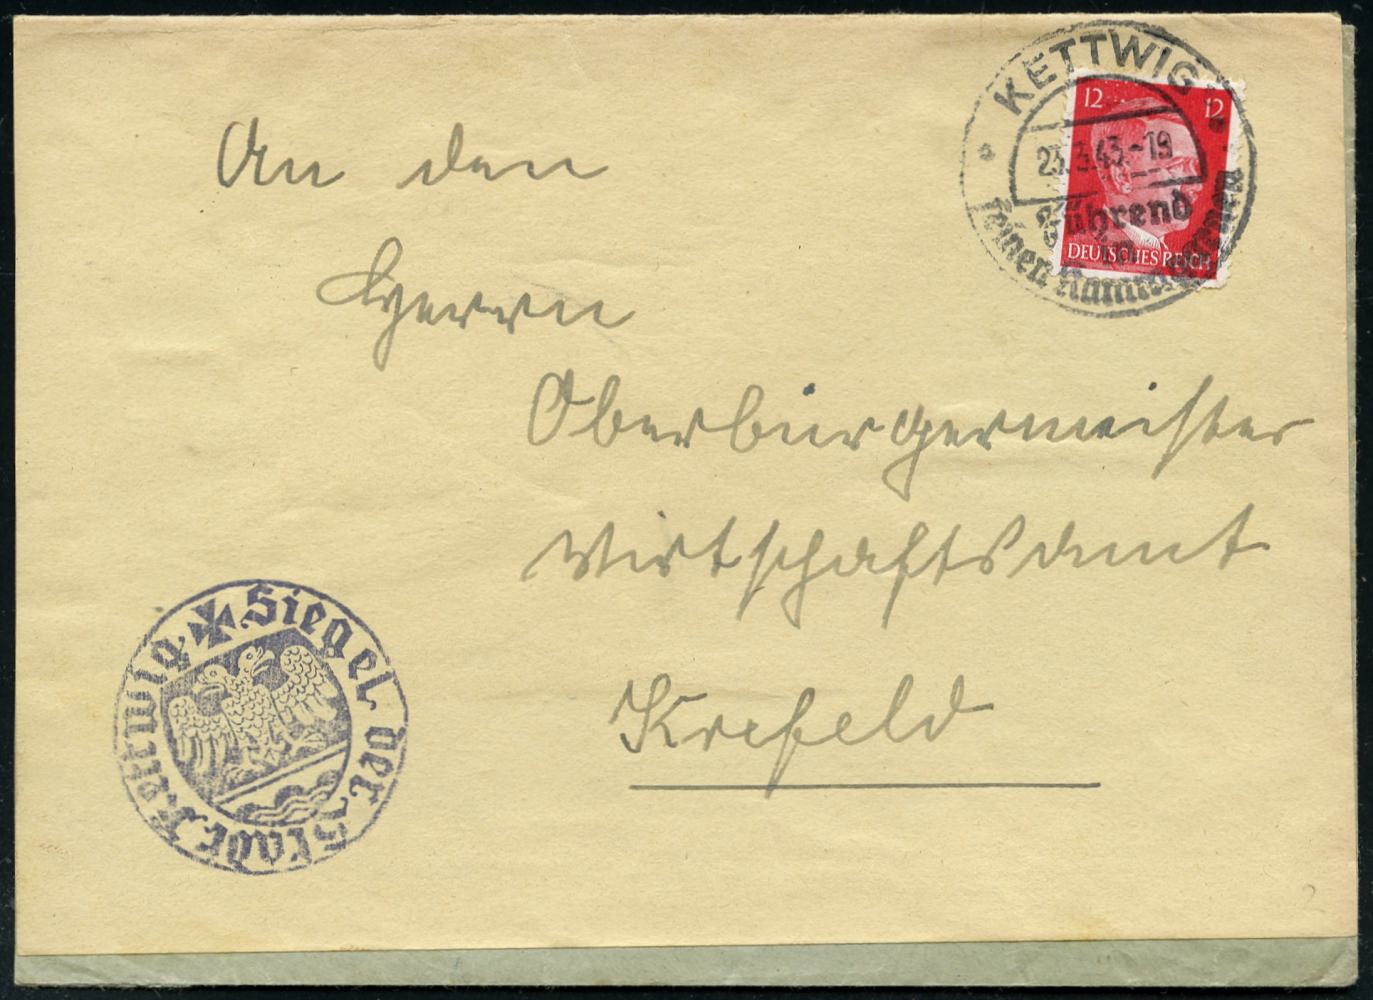 An den
Herrn
Oberbürgermeister
Wirtschaftsamt
Krefeld
KETTWIG
23.3.43.-19
Führend
in
feiner Kammgarnen
12 12
DEUTSCHES REICH
Siegel der Stadt Kettwig